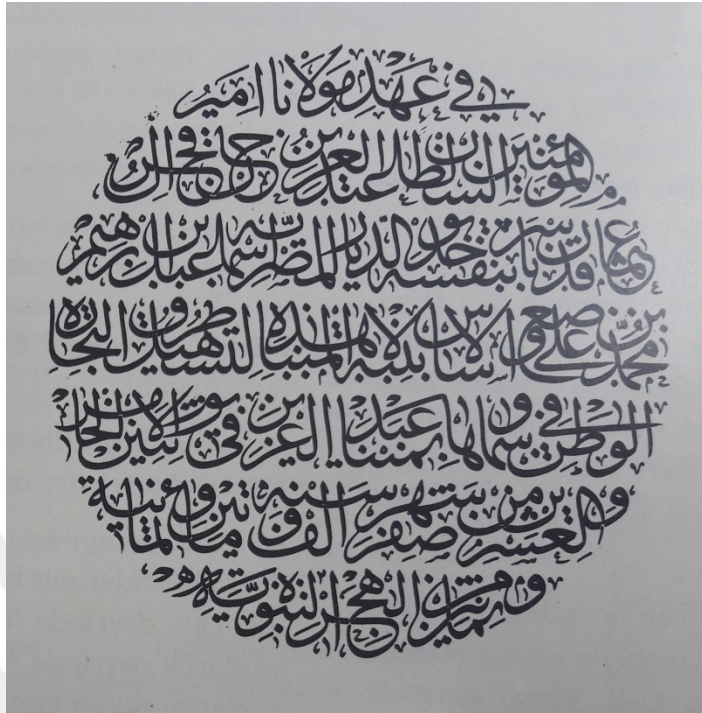 في عهد مولانا امير
المؤمنين السلطان عبد العزيز خان
قد باشر بنفسه خديو الديار المصرية اسماعيل بن ابراهيم
بن محمد علي وضع الاساس بيده لهذه المينا لتسهيل طرق التجارة
في الوطن وسماها بمينا عبد العزيز في يوم الاثنين الخامس
والعشرين من شهر صفر سنة الف ومائتين وثمانية
وثمانين من الهجرة النبوية